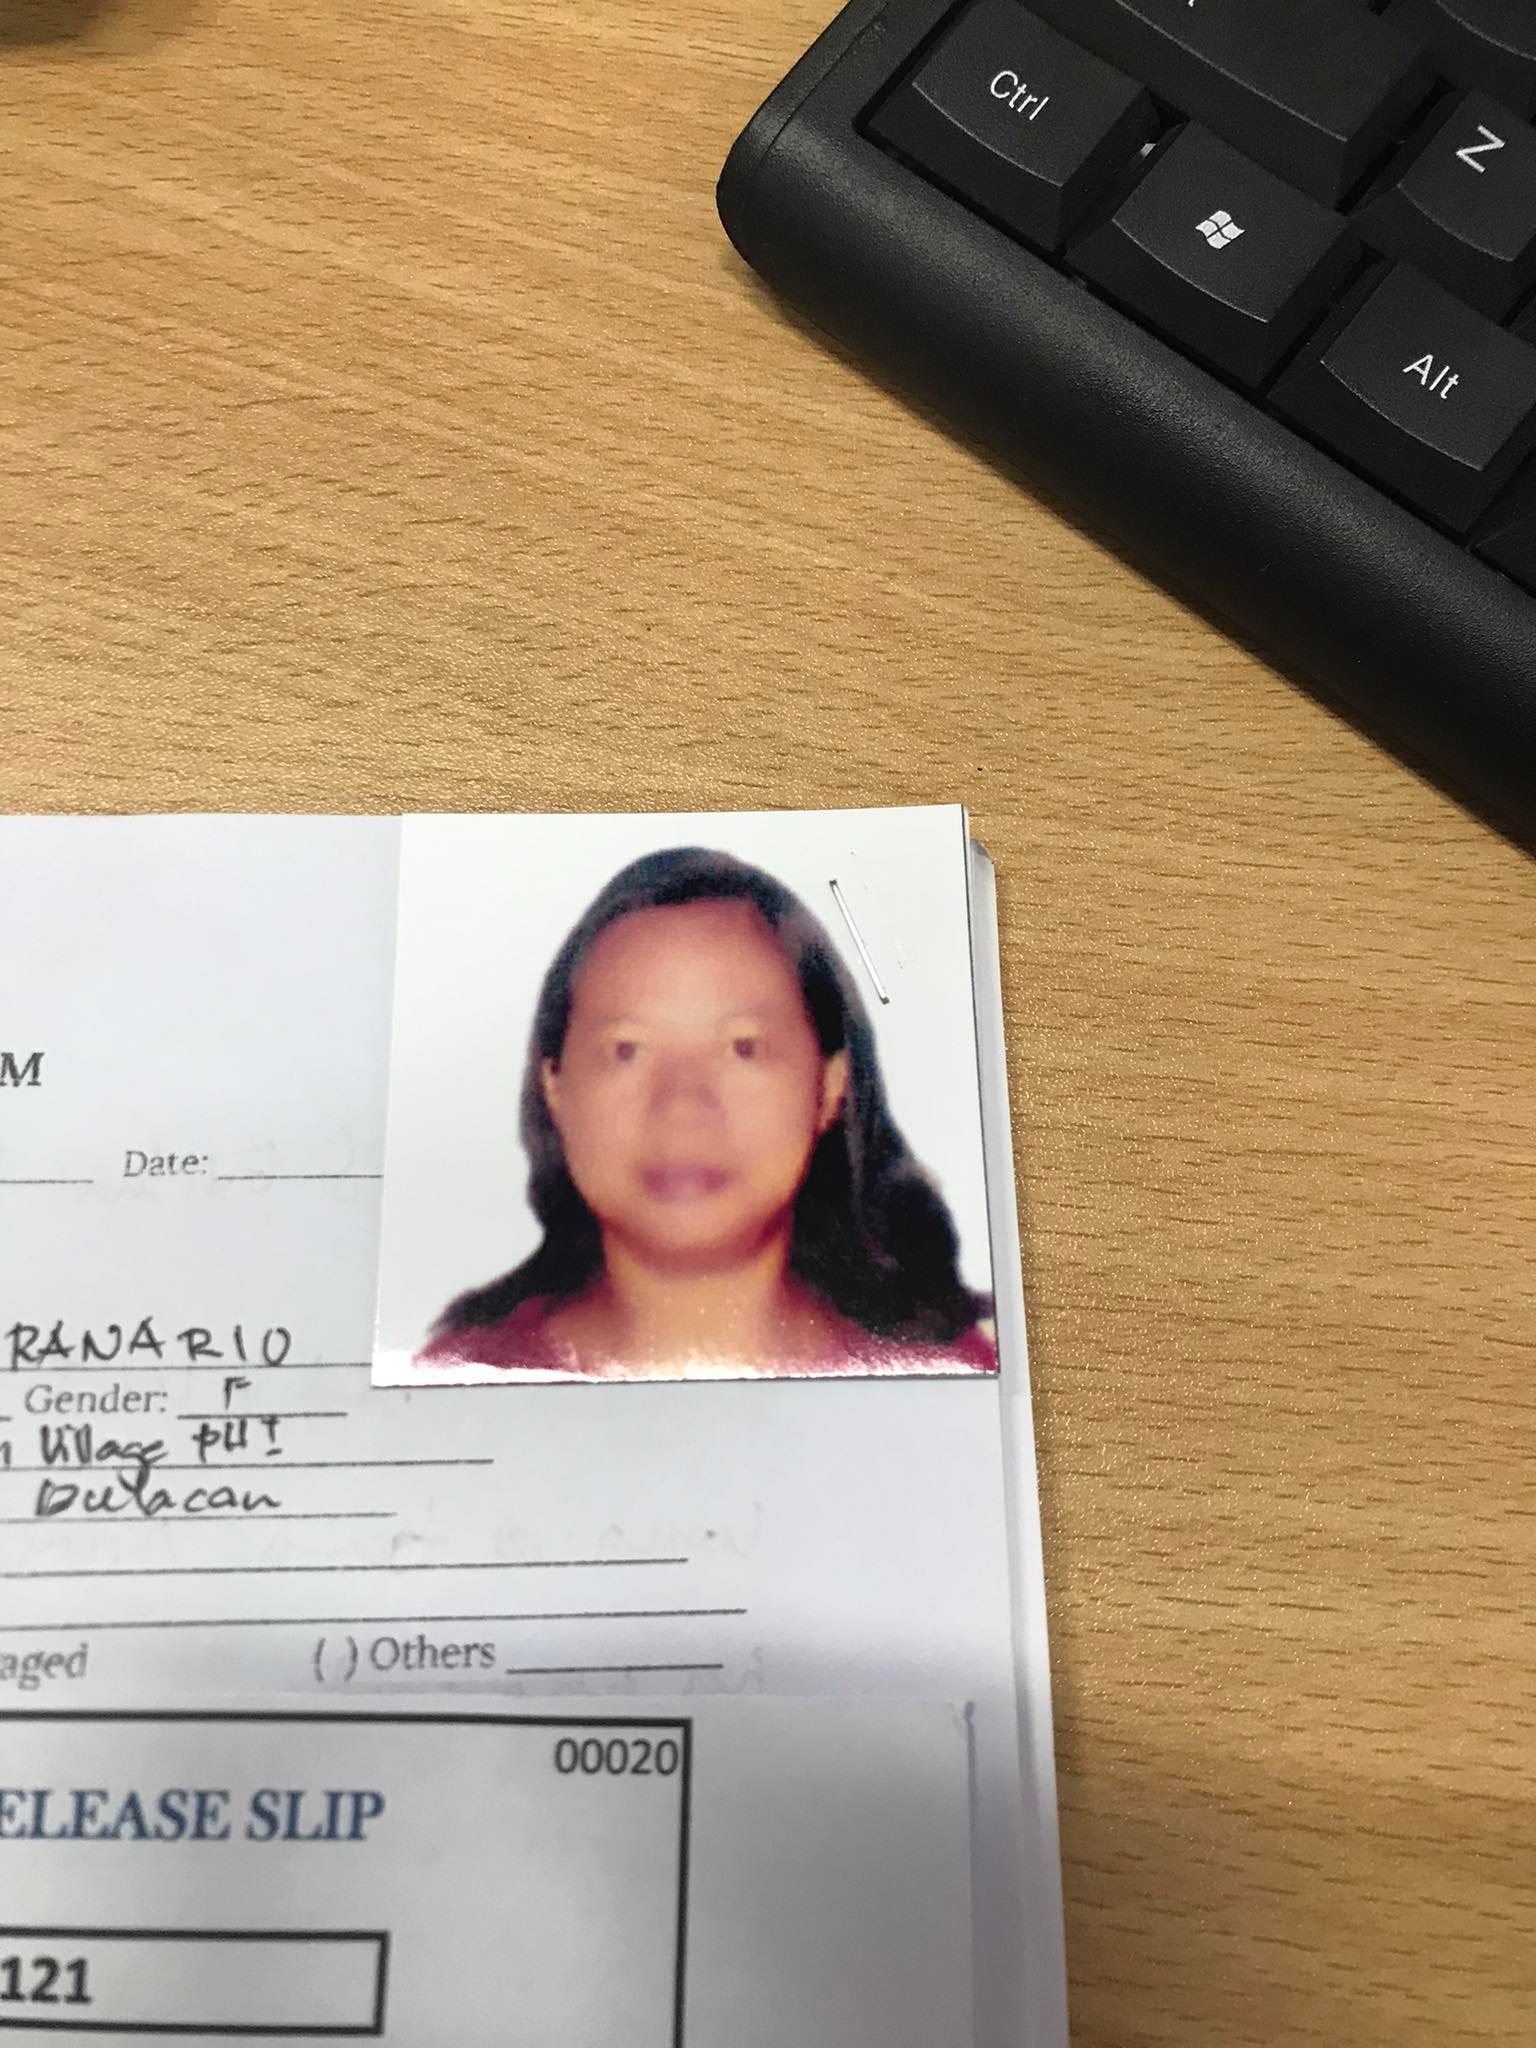 Ctrl
Z
Alt
M
Date:
RANARIO
Gender: F
Village PH I
Bulacan
aged ( ) Others
00020
ELEASE SLIP
121